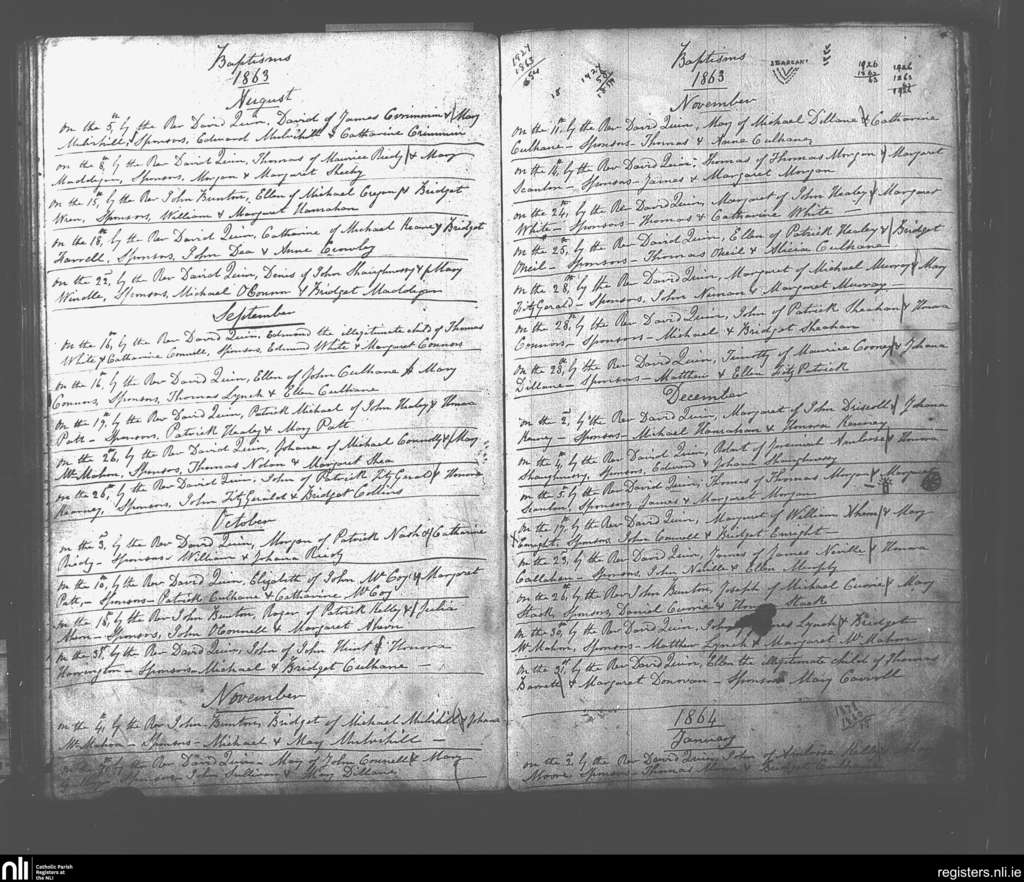 Baptisms
1863
August
On the 5th, by the Rev David Quin, David of James Crimmin & Mary
Mulvihill, Sponsors, Edward Mulvihill & Catharine Crimmin
On the 8, by the Rev David Quin, Thomas of Maurice Reidy & Mary
Maddigan, Sponsors, Morgan & Margaret Sheehy
On the 15th, by the Rev John Bunton, Ellen of Michael Cregan & Bridget
Wren, Sponsors, William & Margaret Hanrahan
On the 18th, by the Rev David Quin, Catharine of Michael Keane & Bridget
Farrell, Sponsors, John Dea & Anne Crowly
On the 22, by the Rev David Quin, Denis of John Shaughnessy & Mary
Windle, Sponsors, Michael OConnor & Bridget Maddigan
September
On the 16, by the Rev David Quin, Edmond the illegitimate child of Thomas
White & Catharine Connell, Sponsors Edmund White & Margaret Connors
On the 16th, by the Rev David Quin, Ellen of John Culhane & Mary
Connors, Sponsors, Thomas Lynch & Ellen Culhane
On the 19, by the Rev David Quin, Patrick Michael of John Healy & Honora
Patt - Sponsors, Patrick Healy & Mary Patt
On the 26, by the Rev David Quin, Johana of Michael Connolly & Mary
McMahon, Sponsors, Thomas Nolan & Margaret Shea
On the 26th, by the Rev David Quin, John of Patrick FitzGerald & Honora
Kearney, Sponsors, John FitzGerald & Bridget Collins
October
On the 3, by the Rev David Quin, Morgan of Patrick Nash & Catharine
Reidy - Sponsors - William & Johana Reidy
On the 10th, by the Rev David Quin, Elizabeth of John McCoy & Margaret
Patt, - Sponsors - Patrick Culhane & Catharine McCoy
On the 18, by the Rev John Bunton, Roger of Patrick Kelly & Julia
Ahern - Sponsors, John OConnell & Margaret Ahern
On the 31st by the Rev David Quin, John of John Hunt & Honora
Harrington - Sponsors - Michael & Bridget Culhane -
November
On the 4, by the Rev John Bunton, Bridget of Michael Mulvihill & Johana
McMahon - Sponsors - Michael & Mary Mulvihill -
by the Rev David Quin - Mary of John Connell & Mary
Sponsors - John Sullivan & Mary Dillane
1927
1863
1927
58
18
Baptisms
1863
SERGEANT
1926
1863
63
1926
1863
November
On the 11th, by the Rev David Quin, Mary of Michael Dillane & Catharine
Culhane - Sponsors - Thomas & Anne Culhane
On the 14, by the Rev David Quin, Thomas of Thomas Morgan & Margaret
Scanlon - Sponsors - James & Margaret Morgan
On the 24, by the Rev David Quin, Margaret of John Healey & Margaret
White - Sponsors - Thomas & Catharine White -
On the 25, by the Rev David Quin, Ellen of Patrick Healey & Bridget
ONeil - Sponsors - Thomas ONeil & Alicia Culhane
On the 28, by the Rev David Quin, Margaret of Michael Murray & Mary
FitzGerald - Sponsors, John Noonan & Margaret Murray -
On the 28, by the Rev David Quin, John of Patrick Sheahan & Honora
Connors - Sponsors - Michael & Bridget Sheahan
On the 28, by the Rev David Quin, Timothy of Maurice Cooney & Johana
Dillane - Sponsors - Matthew & Ellen FitzPatrick
December
On the 2, by the Rev David Quin, Margaret of John Driscoll & Johana
Sponsors - Michael Hanrahan & Honora Kearney
On the 4, by the Rev David Quin, Robert of Jeremiah & Honora
Shaughnessy, Sponsors, Edward & Johana Shaughnessy
On the 5, by the Rev David Quin, Thomas of Thomas Morgan & Margaret
Scanlon, Sponsors, James & Margaret Morgan
On the 17, by the Rev David Quin, Margaret of William Ahern & Mary
Enright, Sponsors, John Connell & Bridget Enright -
On the 23, by the Rev David Quin, James of James Neville & Honora
Callaghan - Sponsors, John Neville & Ellen Murphy
On the 26, by the Rev John Bunton, Joseph of Michael Currie & Mary
Stack, Sponsors, Daniel Currie & Stack
On the 30, by the Rev David Quin, John Lynch & Bridget
McMahon, Sponsors - Matthew Lynch & Margaret McMahon
On the 31, by the Rev David Quin, Ellen the illegitimate child of Thomas
Barrett & Margaret Donovan - Sponsors Mary Carroll
1864
January
On the 2, by the Rev David Quin, John of
Moore, Sponsors - Thomas & Bridget
nli
Catholic Parish
Registers at
the NLI
registers.nli.ie